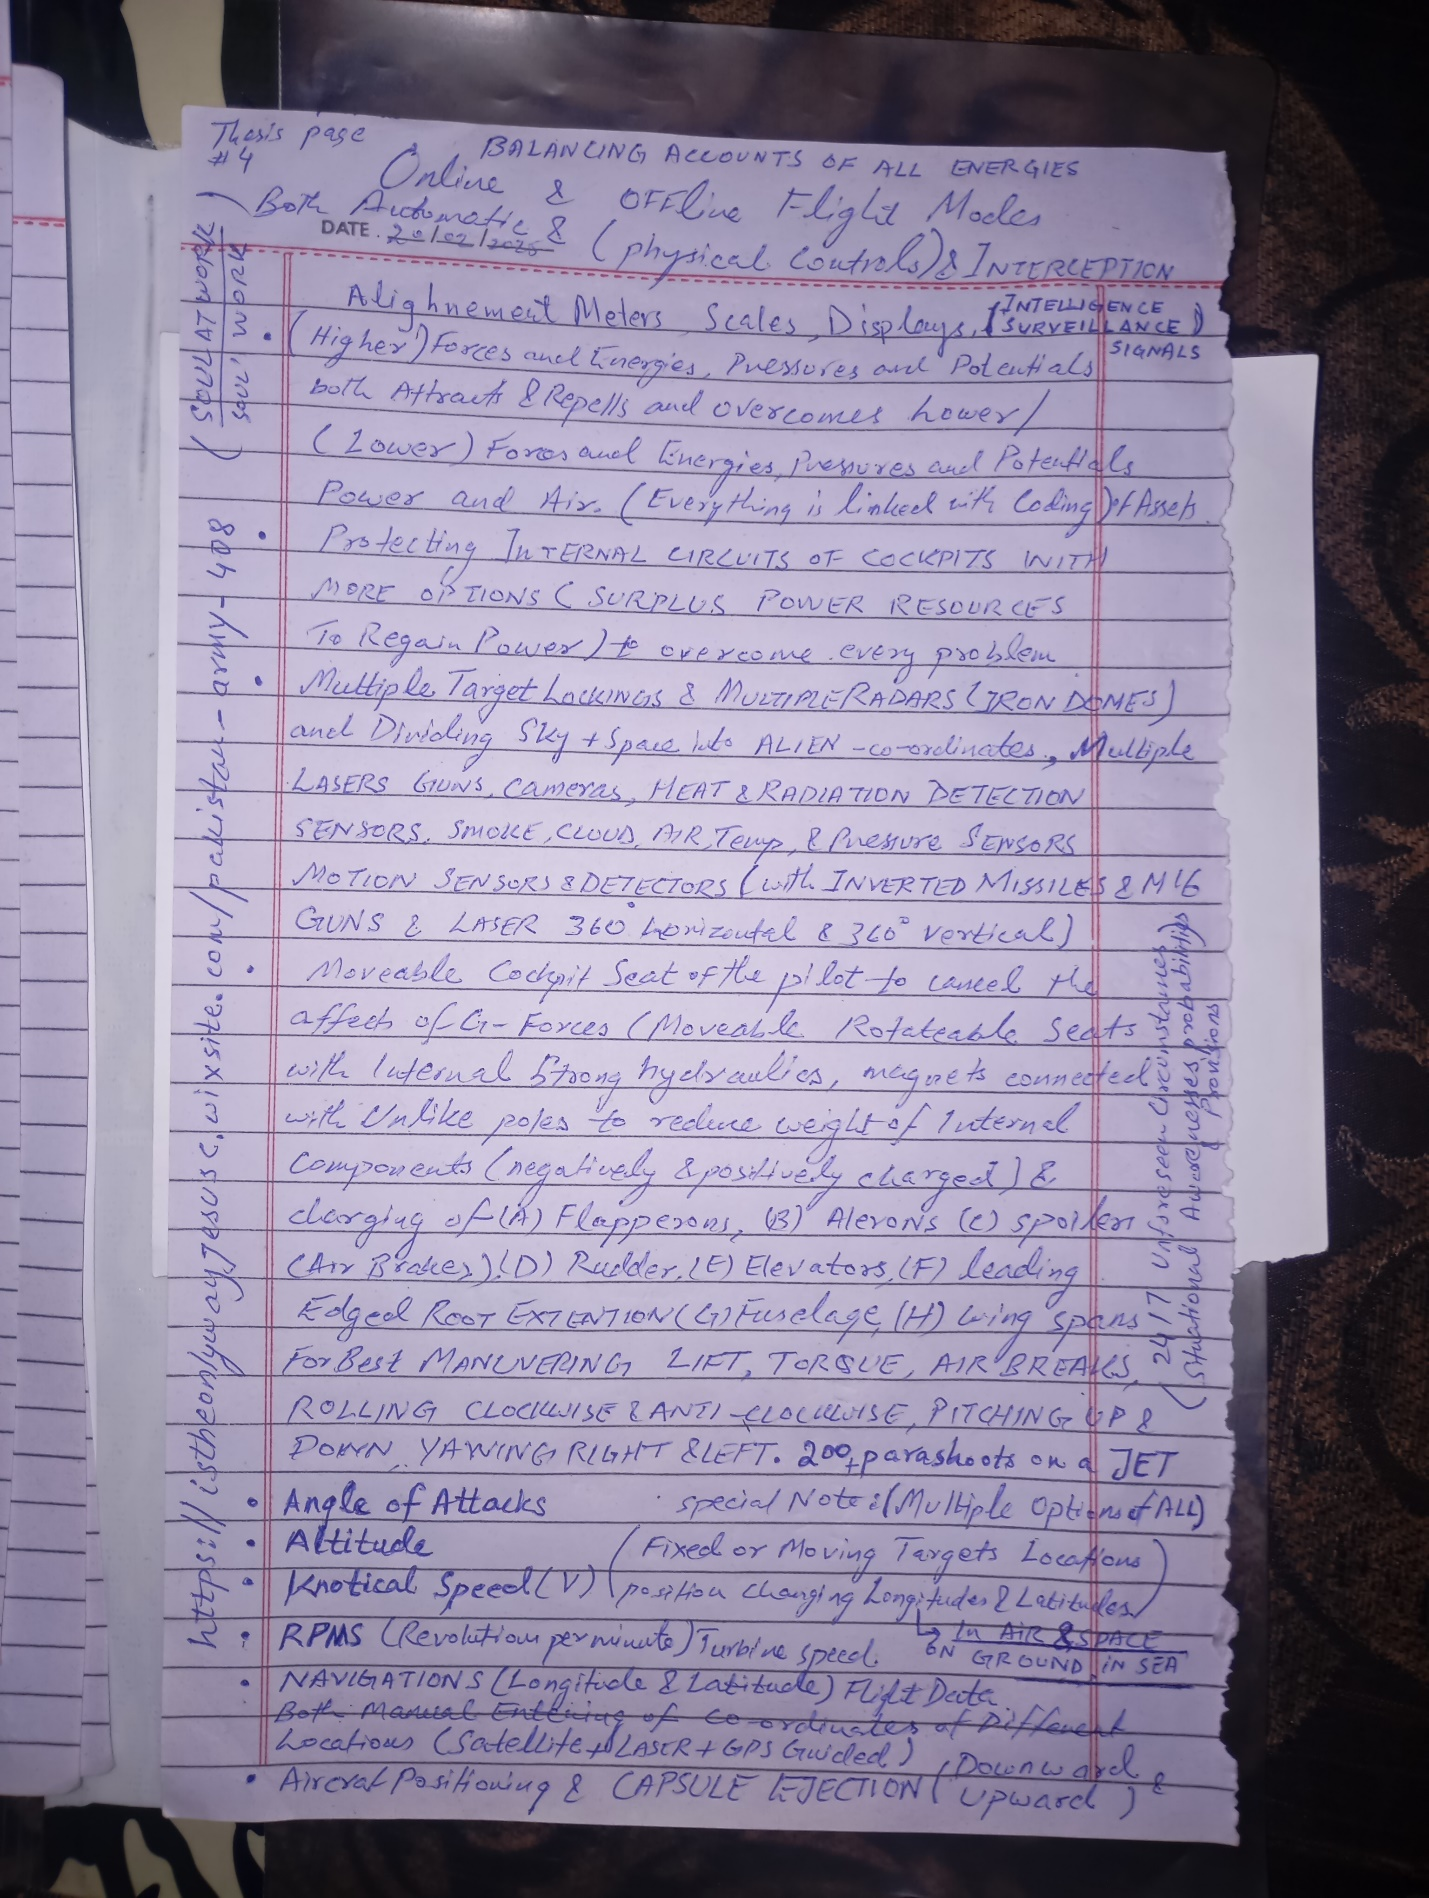 Thesis page
#4
BALANCING ACCOUNTS OF ALL ENERGIES
Online & OFFline Flight Modes
Both Automatic &
DATE. 20/02/2025
(physical Controls) & INTERCEPTION
(SOUL AT WORK)
SOUL' WORK
Alighnement Meters, Scales, Displays, (INTELLIGENCE
SURVEILLANCE)
SIGNALS
• (Higher) Forces and Energies, Pressures and Potentials
both Attracts & Repells and overcomes Lower/
(Lower) Forces and Energies, Pressures and Potentials
Power and Air. (Everything is linked with Coding) of Assets.
• Protecting INTERNAL CIRCUITS OF COCKPITS WITH
MORE OPTIONS (SURPLUS POWER RESOURCES
To Regain Power) to overcome every problem
• Multiple Target Lockings & MULTIPLE RADARS (IRON DOMES)
and Dividing Sky + Space into ALIEN -co-ordinates, Multiple
LASERS GUNS, Cameras, HEAT & RADIATION DETECTION
SENSORS, SMOKE, CLOUD, AIR, Temp, & Pressure SENSORS
MOTION SENSORS & DETECTORS (with INVERTED MISSILES & M16
GUNS & LASER 360° horizontal & 360° vertical)
• Moveable Cockpit Seat of the pilot to cancel the
affects of G-Forces (Moveable Rotateable Seats
with Internal Strong hydraulics, magnets connected
with Unlike poles to reduce weight of Internal
Components (negatively & positively charged) &
charging of (A) Flapperons, (B) Alerons (C) spoilers
(Air Brakes), (D) Rudder, (E) Elevators, (F) leading
Edged ROOT EXTENTION (G) Fuselage, (H) Wing spans
For Best MANUVERING LIFT, TORQUE, AIR BREAKS,
ROLLING CLOCKWISE & ANTI-CLOCKWISE, PITCHING UP &
DOWN, YAWING RIGHT & LEFT. 200+ parashoots on a JET
• Angle of Attacks special Note: (Multiple Options of ALL)
• Altitude (Fixed or Moving Targets Locations
• Knotical Speed (V) position changing Longitudes & Latitudes)
↳ In AIR & SPACE
• RPMS (Revolution per minute) Turbine speed. ON GROUND, IN SEA
• NAVIGATIONS (Longitude & Latitude) Flight Data
Both Manual Entering of Co-ordinates of Different
Locations (Satellite + LASER + GPS Guided)
• Aircraf Positioning & CAPSULE EJECTION (Downward &
Upward)
https://istheonlywayjesusc.wixsite.com/pakistan-army-408
24/7 Unforeseen Circumstances)
(Situational Awarenesses, probabilities
Provisions